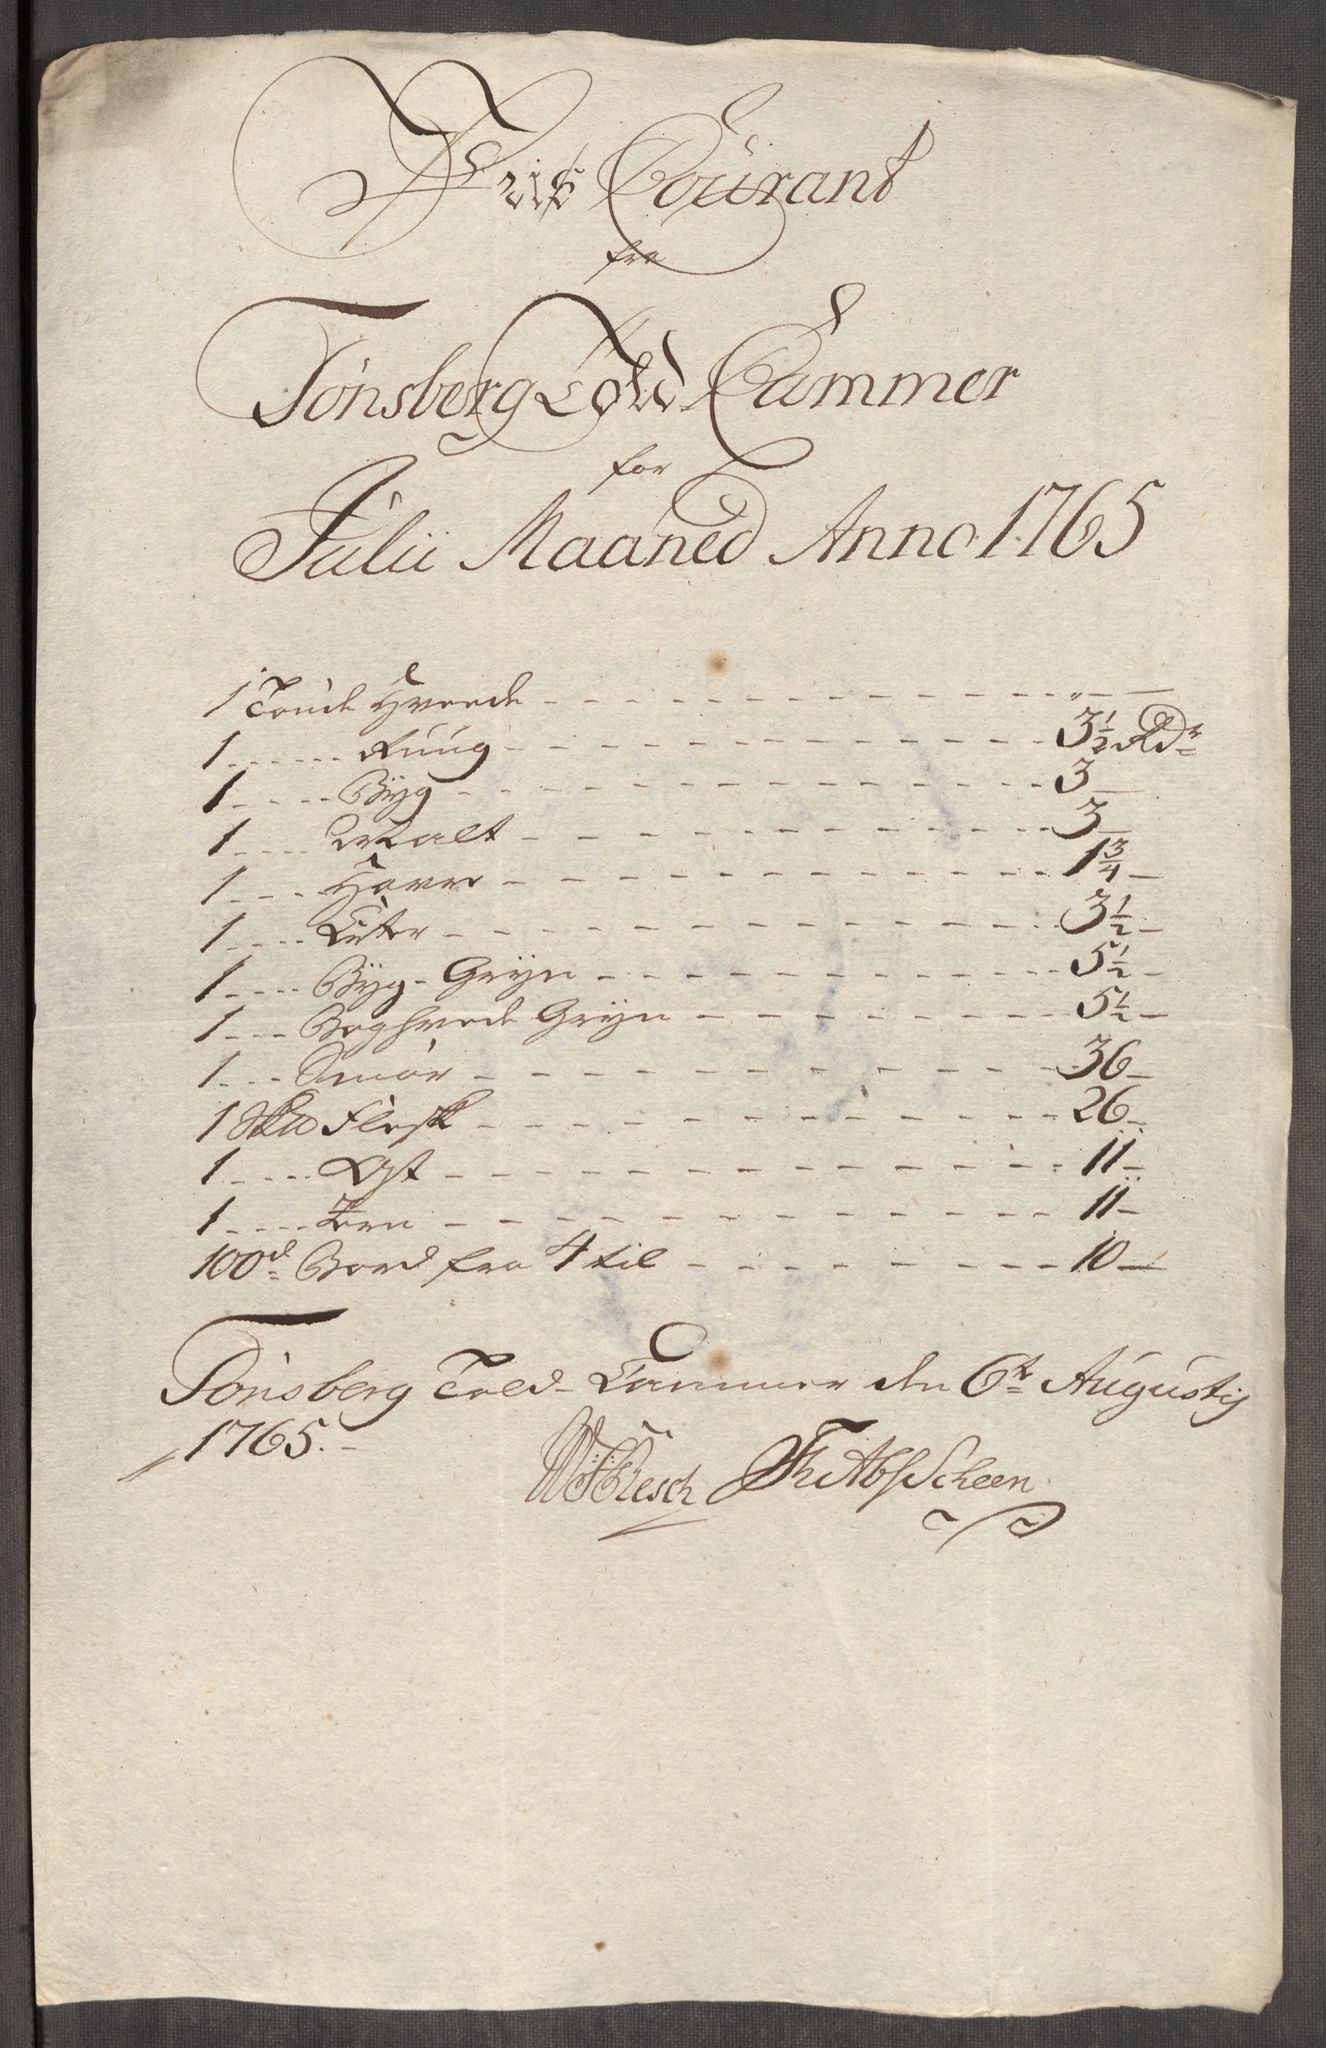 Priis Courant
fra
Tönsberg Told-Cammer
for
Julii Maaned Anno 1765
1 Tönde Hveede - - - " —
1 - - - Rüüg - - - 3 1/2 Rdr
1 - - - Byg - - - 3 —
1 - - - Malt - - - 3 —
1 - - - Havre - - - 1 3/4 —
1 - - - Erter - - - 3 1/2 —
1 - - - Byg-Gryn - - - 5 1/2 —
1 - - - Boghvede Gryn - - - 5 1/2 —
1 - - - Smör - - - 36 —
1 Skd Flesk - - - 26 —
1 - - - Ost - - - 11 —
1 - - - Jern - - - 11 —
100d Bord fra 4 til - - - 10 —
Tönsberg Told-Cammer den 6te Augustij
1765.
Resch Scheen